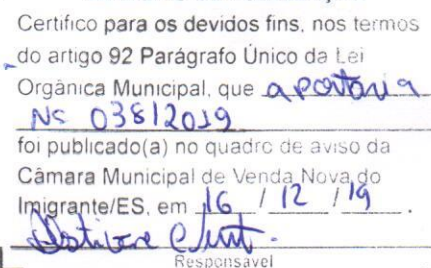 Certifico para os devidos fins, nos termos
do artigo 92 Parágrafo Único da Lei
Orgânica Municipal, que a portaria
Nº 038/2019
foi publicado(a) no quadro de aviso da
Câmara Municipal de Venda Nova do
Imigrante/ES, em 16 / 12 / 19 .
Responsável